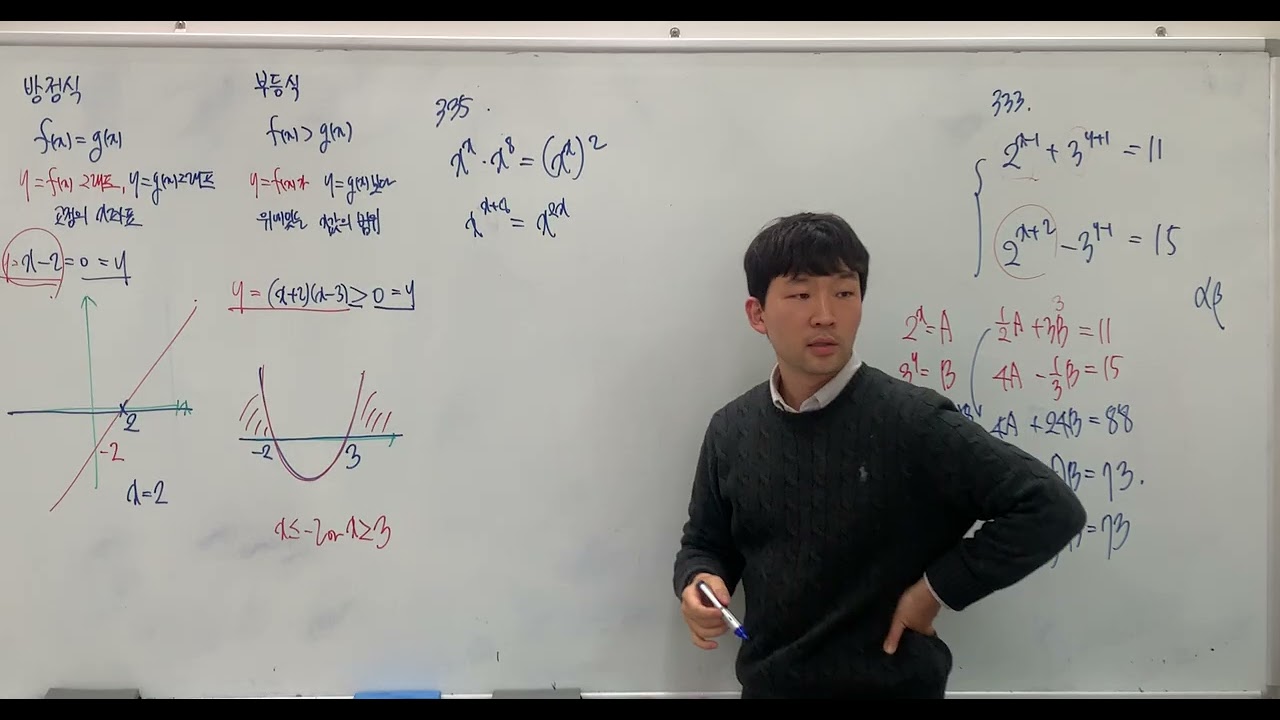 방정식
f(x) = g(x)
y = f(x) 그래프, y = g(x) 그래프
교점의 x좌표
y = x-2 = 0 = y
2
-2
x=2
부등식
f(x) > g(x)
y = f(x)가 y = g(x)보다
위에있는 x값의 범위
y = (x+2)(x-3) ≥ 0 = y
-2 3
x≤-2 or x≥3
335.
x^x · x^8 = (x^x)^2
x^{x+8} = x^{2x}
333.
2^{x-1} + 3^{y+1} = 11
2^{x+2} - 3^{y-1} = 15
αβ
2^x = A
3^y = B
1/2 A + 3B = 11
3
4A - 1/3 B = 15
4A + 24B = 88
B = 73.
= 73